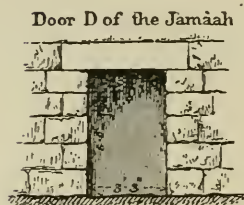 Door D of the Jamâah
3·3